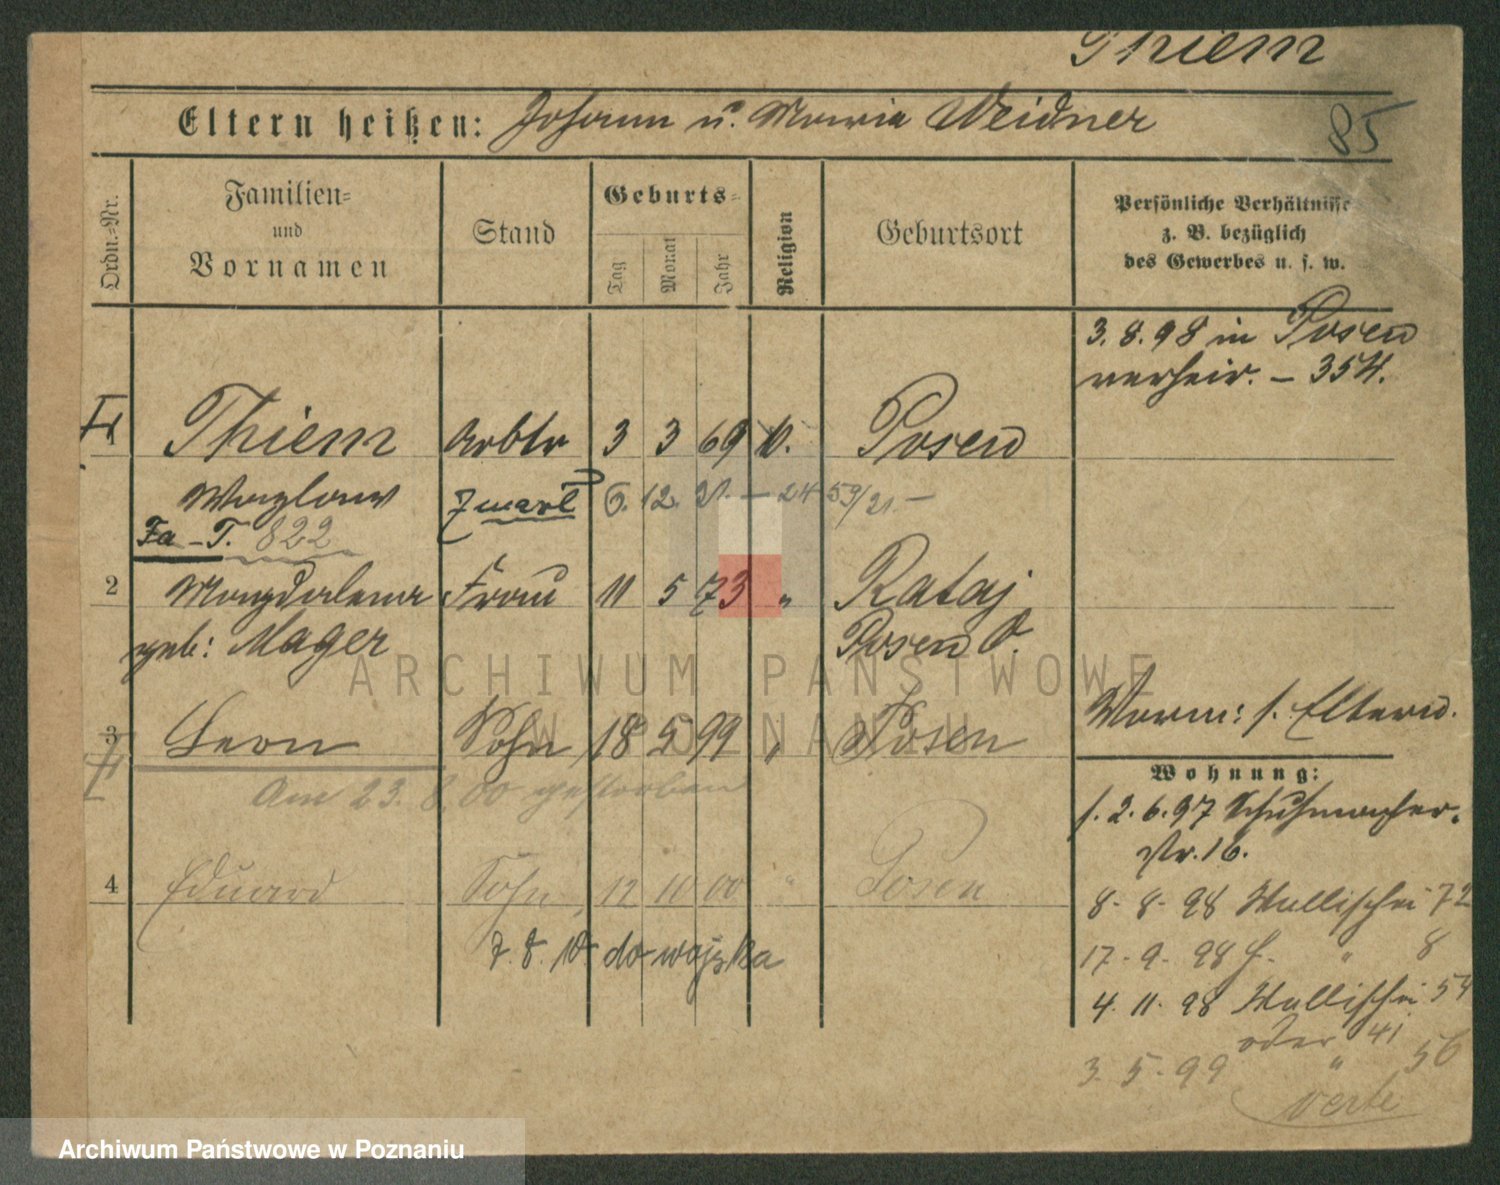 Thiem
Eltern heißen: Johann u. Maria Weidner
85
Ordn.-Nr.
Familien- und Vornamen
Stand
Geburts-
Tag
Monat
Jahr
Religion
Geburtsort
Persönliche Verhältnisse
z. B. bezüglich
des Gewerbes u. s. w.
3. 8. 98 in Posen
verheir. – 354.
Thiem Arbtr 3 3 69 Posen
Wazlaw zmarł 6. 12. 21. – 2453/21 –
Fa – T. 822
2 Magdalena Frau 11 5 73 " Rataj
geb: Mager Posen O.
3 Leon Sohn 18 5 99 " Posen
Vorm: s. Eltern.
Am 23. 8. 00 gestorben
Wohnung:
s. 2. 6. 97 Schuhmacher-
str. 16.
4 Eduard Sohn 12 10 00 " Posen
8. 8. 98 Wallischei 72
do wojska
17. 9. 98 " 8
4. 11. 98 Wallischei 54
oder 41
3. 5. 99 " 56
verte
ARCHIWUM PAŃSTWOWE
W POZNANIU
Archiwum Państwowe w Poznaniu